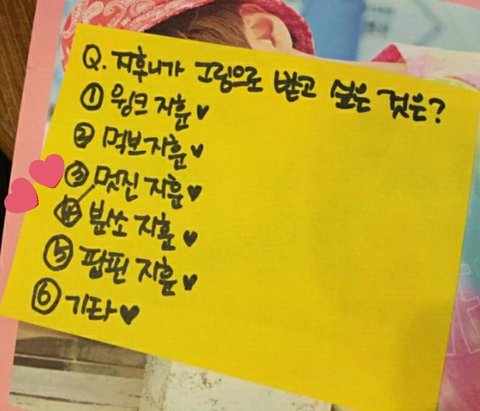 Q. 지후니가 그림으로 받고 싶은 것은?
① 윙크 지훈♥
② 먹보지훈♥
③ 멋진 지훈♥
④ 분쏘 지훈♥
⑤ 팝핀 지훈♥
⑥ 기타♥